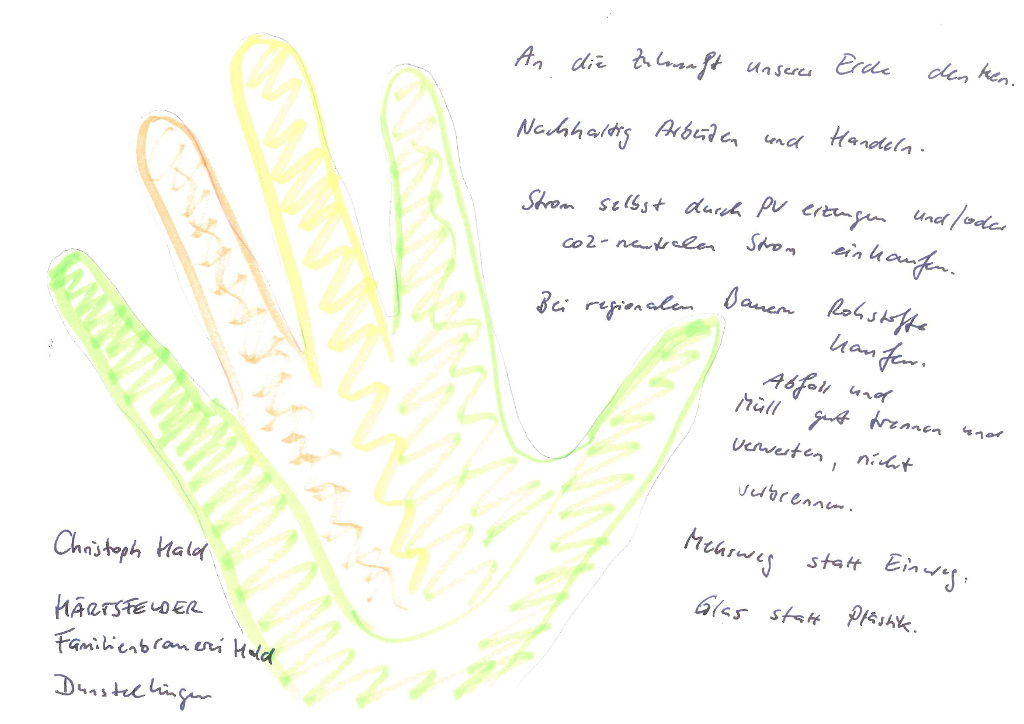 An die Zukunft unserer Erde denken.
Nachhaltig Arbeiten und Handeln.
Strom selbst durch PV erzeugen und/oder
co2-neutralen Strom einkaufen.
Bei regionalen Bauern Rohstoffe
kaufen.
Abfall und
Müll gut trennen und
verwerten, nicht
verbrennen.
Mehrweg statt Einweg.
Glas statt Plastik.
Christoph Hald
HÄRTSFELDER
Familienbrauerei Hald
Dunstelkingen